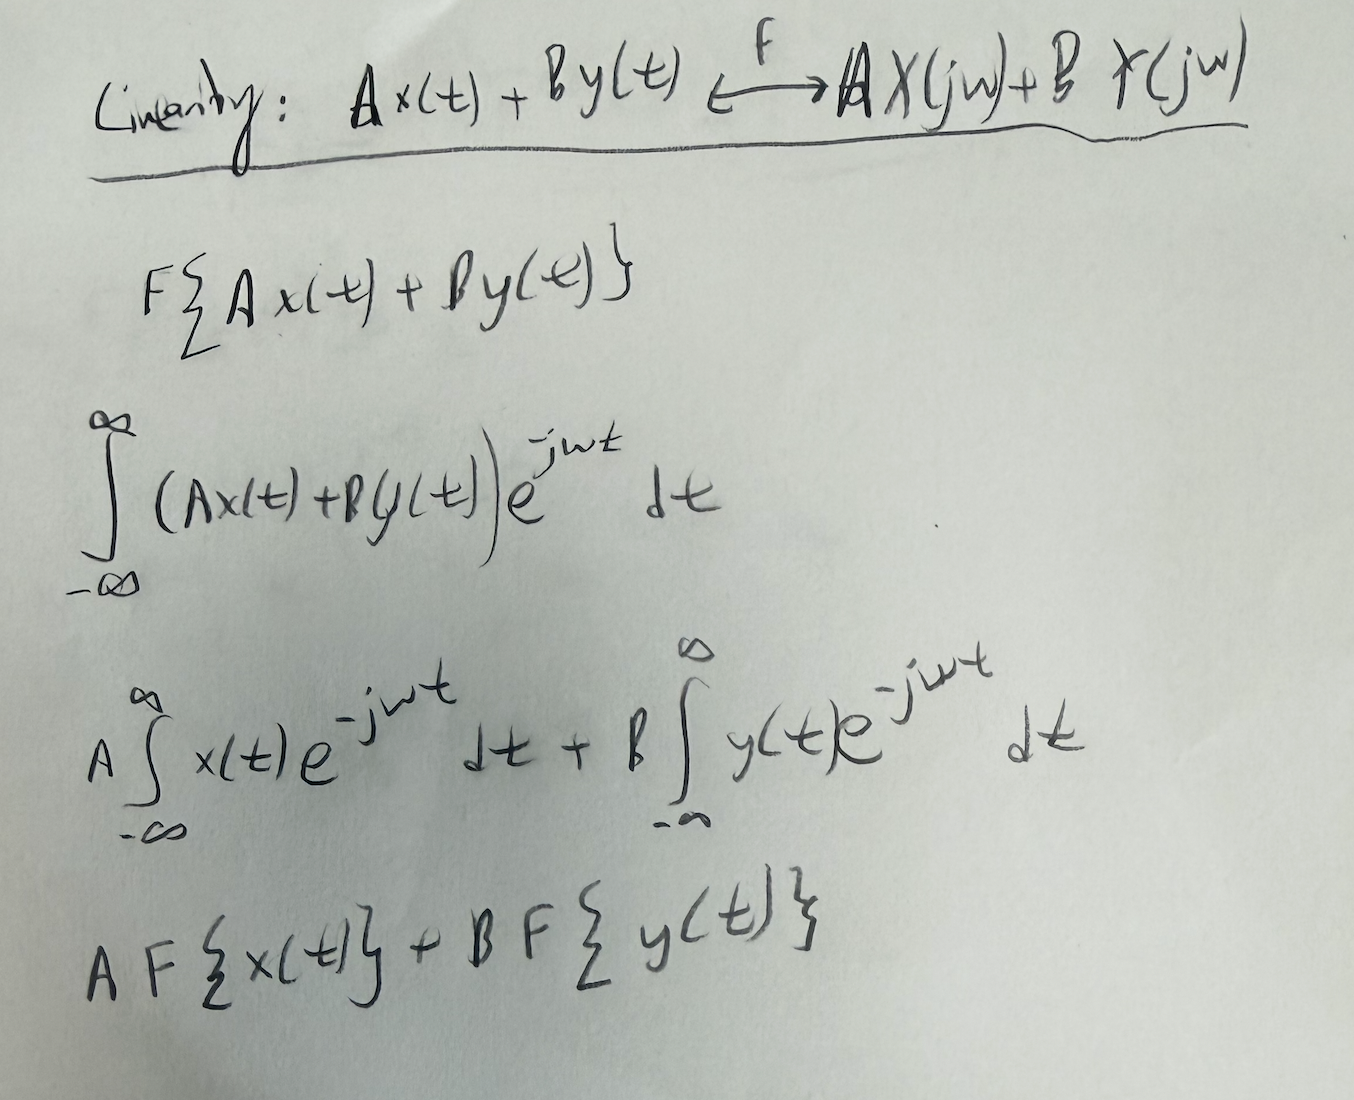 Linearity: Ax(t) + By(t) ⟷F AX(jw) + B Y(jw)
F{Ax(t) + By(t)}
∫_{-∞}^{∞} (Ax(t) + By(t)) e^{-jwt} dt
A ∫_{-∞}^{∞} x(t) e^{-jwt} dt + B ∫_{-∞}^{∞} y(t) e^{-jwt} dt
A F{x(t)} + B F{y(t)}